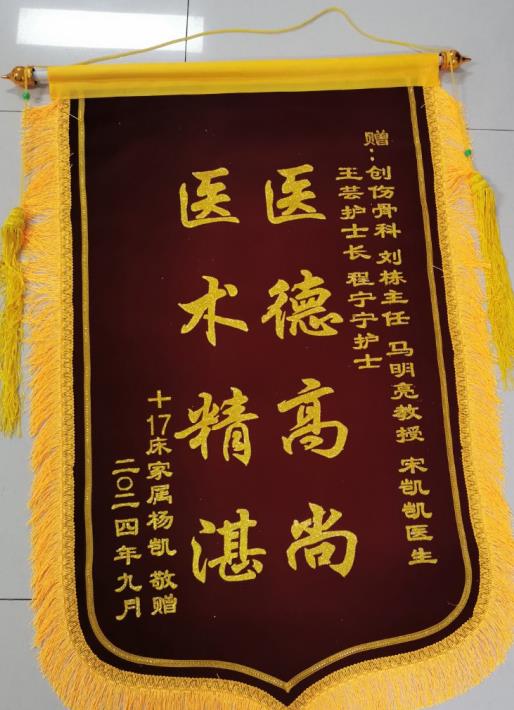 赠：创伤骨科 刘栋主任 马明亮教授 宋凯凯医生
王芸护士长 程宁宁护士
医德高尚
医术精湛
十17床家属杨凯 敬赠
二〇二四年九月